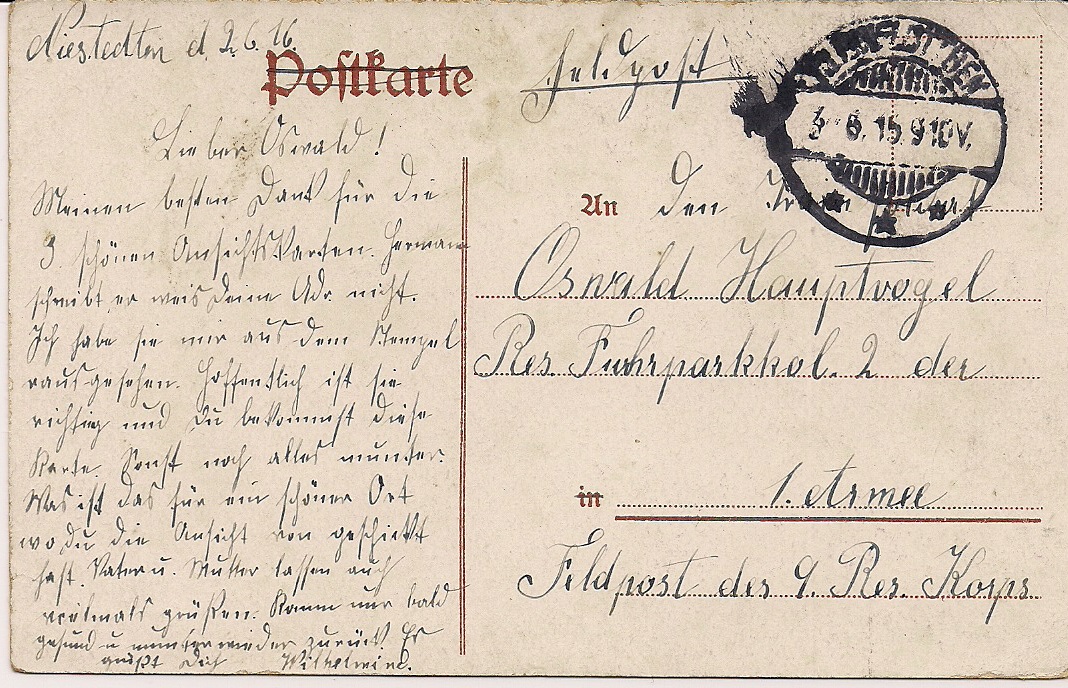 Niestedten d. 2.6.16.
Postkarte
Feldpost
6. 15. 9 10V.
Lieber Oswald!
Meinen besten Dank für die
3. schönen Ansichtskarten. Hermann
schreibt er weis deine Adr. nicht.
Ich habe sie mir aus dem Stempel
rausgesehen. Hoffentlich ist sie
richtig und du bekommst diese
Karte. Sonst noch alles munter.
Was ist das für ein schöner Ort
wo du die Ansicht von geschickt
hast. Vater u. Mutter lassen auch
vielmals grüßen. Komm nur bald
gesund u munter wieder zurück. Es
grüßt Dich
An den
Oswald Hauptvogel
Res. Fuhrparkkol. 2 der
in 1. Armee
Feldpost des 9. Res. Korps